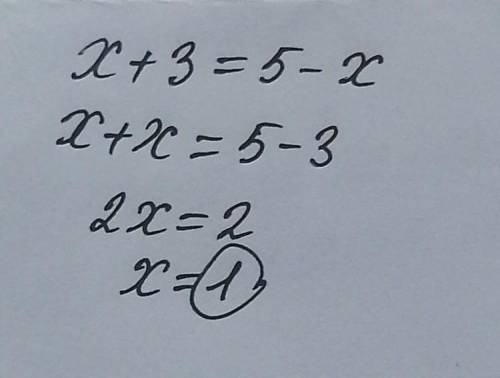 x+3=5-x
x+x=5-3
2x=2
x=1